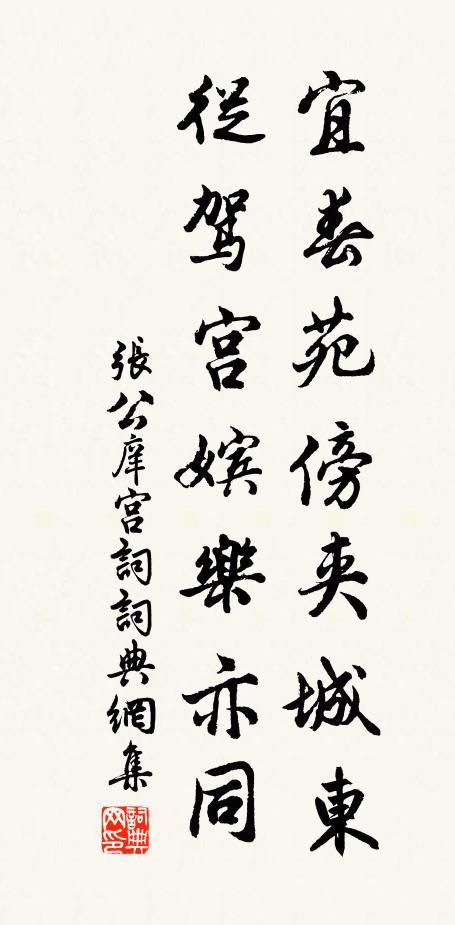 宜春苑傍夾城東
從駕宮嬪樂亦同
張公庠宮詞詞典網集
詞典网印